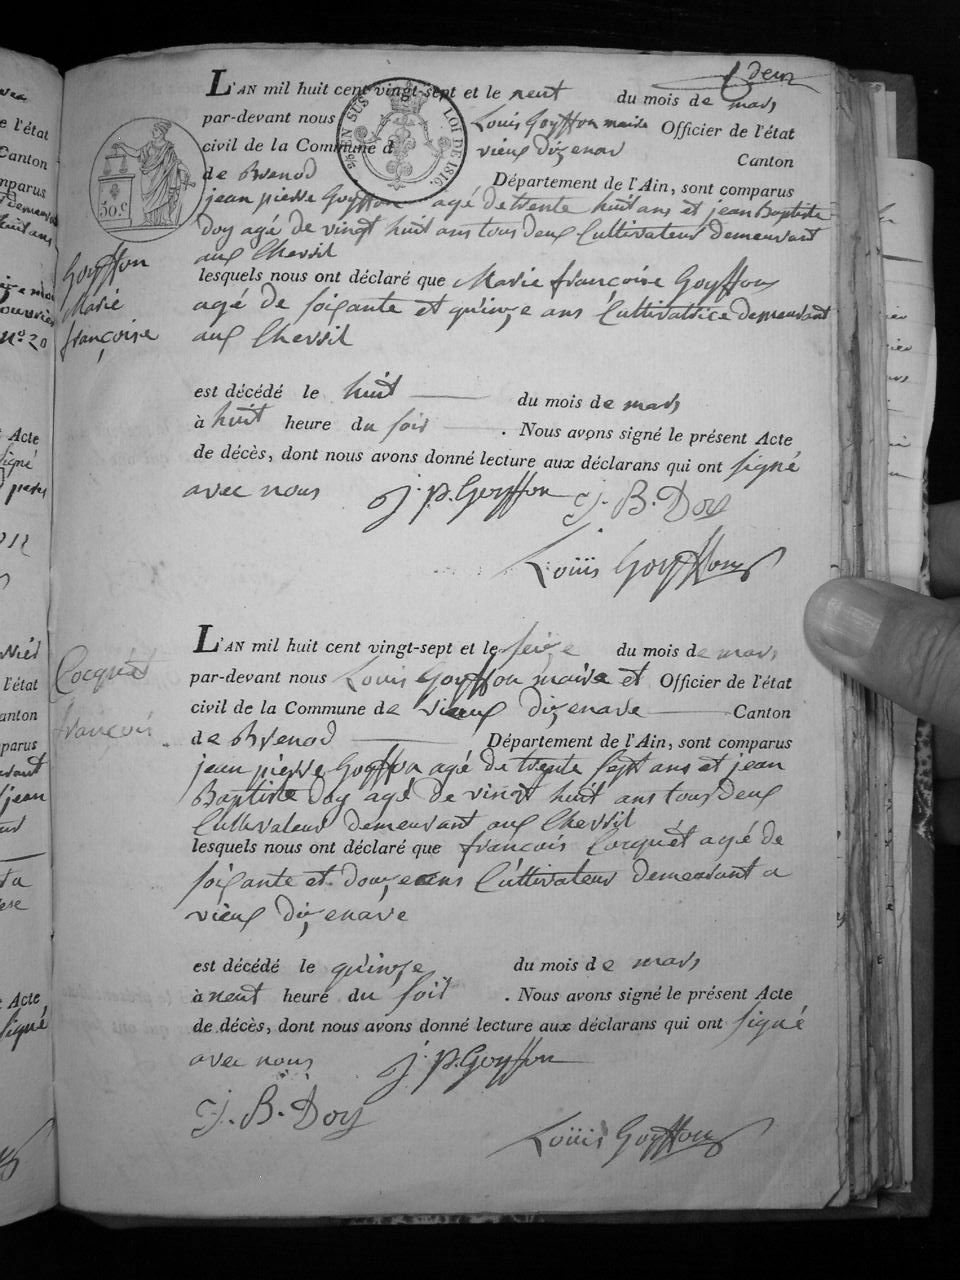 deux
L'AN mil huit cent vingt-sept et le neuf du mois de mars
par-devant nous Louis Goyffon maire Officier de l'état
civil de la Commune d vieux dizenave Canton
de Brenod Département de l'Ain, sont comparus
jean pierre Goyffon agé de trente huit ans et jean Baptiste
Doy agé de vingt huit ans tous deux Cultivateur demeurant
aux Chevril
lesquels nous ont déclaré que Marie françoise Goyffon
agé de soixante et quinze ans Cultivatrice demeurant
aux Chevril
est décédé le huit du mois de mars
à huit heure du soir. Nous avons signé le présent Acte
de décès, dont nous avons donné lecture aux déclarans qui ont signé
avec nous J. P. Goyffon J. B. Doy
Louis Goyffon
Goyffon
Marie
françoise
EN SUS
LOI DE 1816.
50.c
L'AN mil huit cent vingt-sept et le seize du mois de mars
par-devant nous Louis Goyffon maire et Officier de l'état
civil de la Commune de vieux dizenave Canton
de Brenod Département de l'Ain, sont comparus
jean pierre Goyffon agé de trente sept ans et jean
Baptiste Doy agé de vingt huit ans tous deux
Cultivateur demeurant aux Chevril
lesquels nous ont déclaré que françois Cocquet agé de
soixante et douze ans Cultivateur demeurant a
vieux dizenave
est décédé le quinze du mois de mars
à neuf heure du soir. Nous avons signé le présent Acte
de décès, dont nous avons donné lecture aux déclarans qui ont signé
avec nous J. P. Goyffon
J. B. Doy
Louis Goyffon
Cocquet
françois